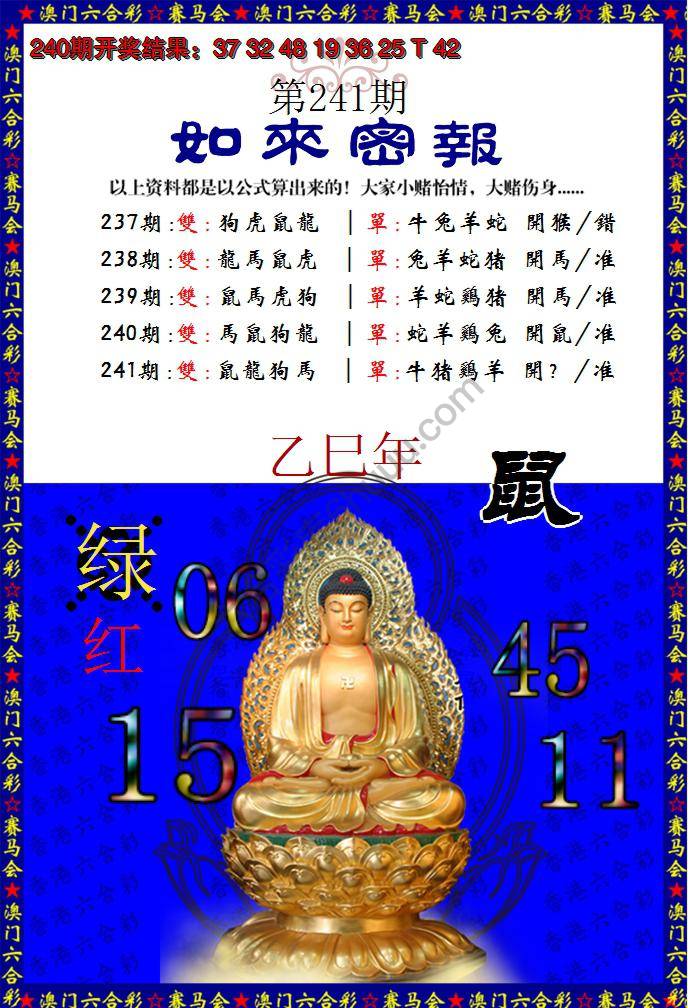 ★澳门六合彩☆赛马会★澳门六合彩☆赛马会★澳门六合彩☆赛马会★
240期开奖结果：37 32 48 19 36 25 T 42
第241期
如來密報
以上资料都是以公式算出来的！大家小赌怡情，大赌伤身......
237期:雙:狗虎鼠龍 | 單:牛兔羊蛇 開猴/錯
238期:雙:龍馬鼠虎 | 單:兔羊蛇猪 開馬/准
239期:雙:鼠馬虎狗 | 單:羊蛇鷄猪 開馬/准
240期:雙:馬鼠狗龍 | 單:蛇羊鷄兔 開鼠/准
241期:雙:鼠龍狗馬 | 單:牛猪鷄羊 開?/准
乙巳年
鼠
绿
红
06
45
15
11
卍
香港六合彩
★澳门六合彩☆赛马会★澳门六合彩☆赛马会★澳门六合彩☆赛马会★